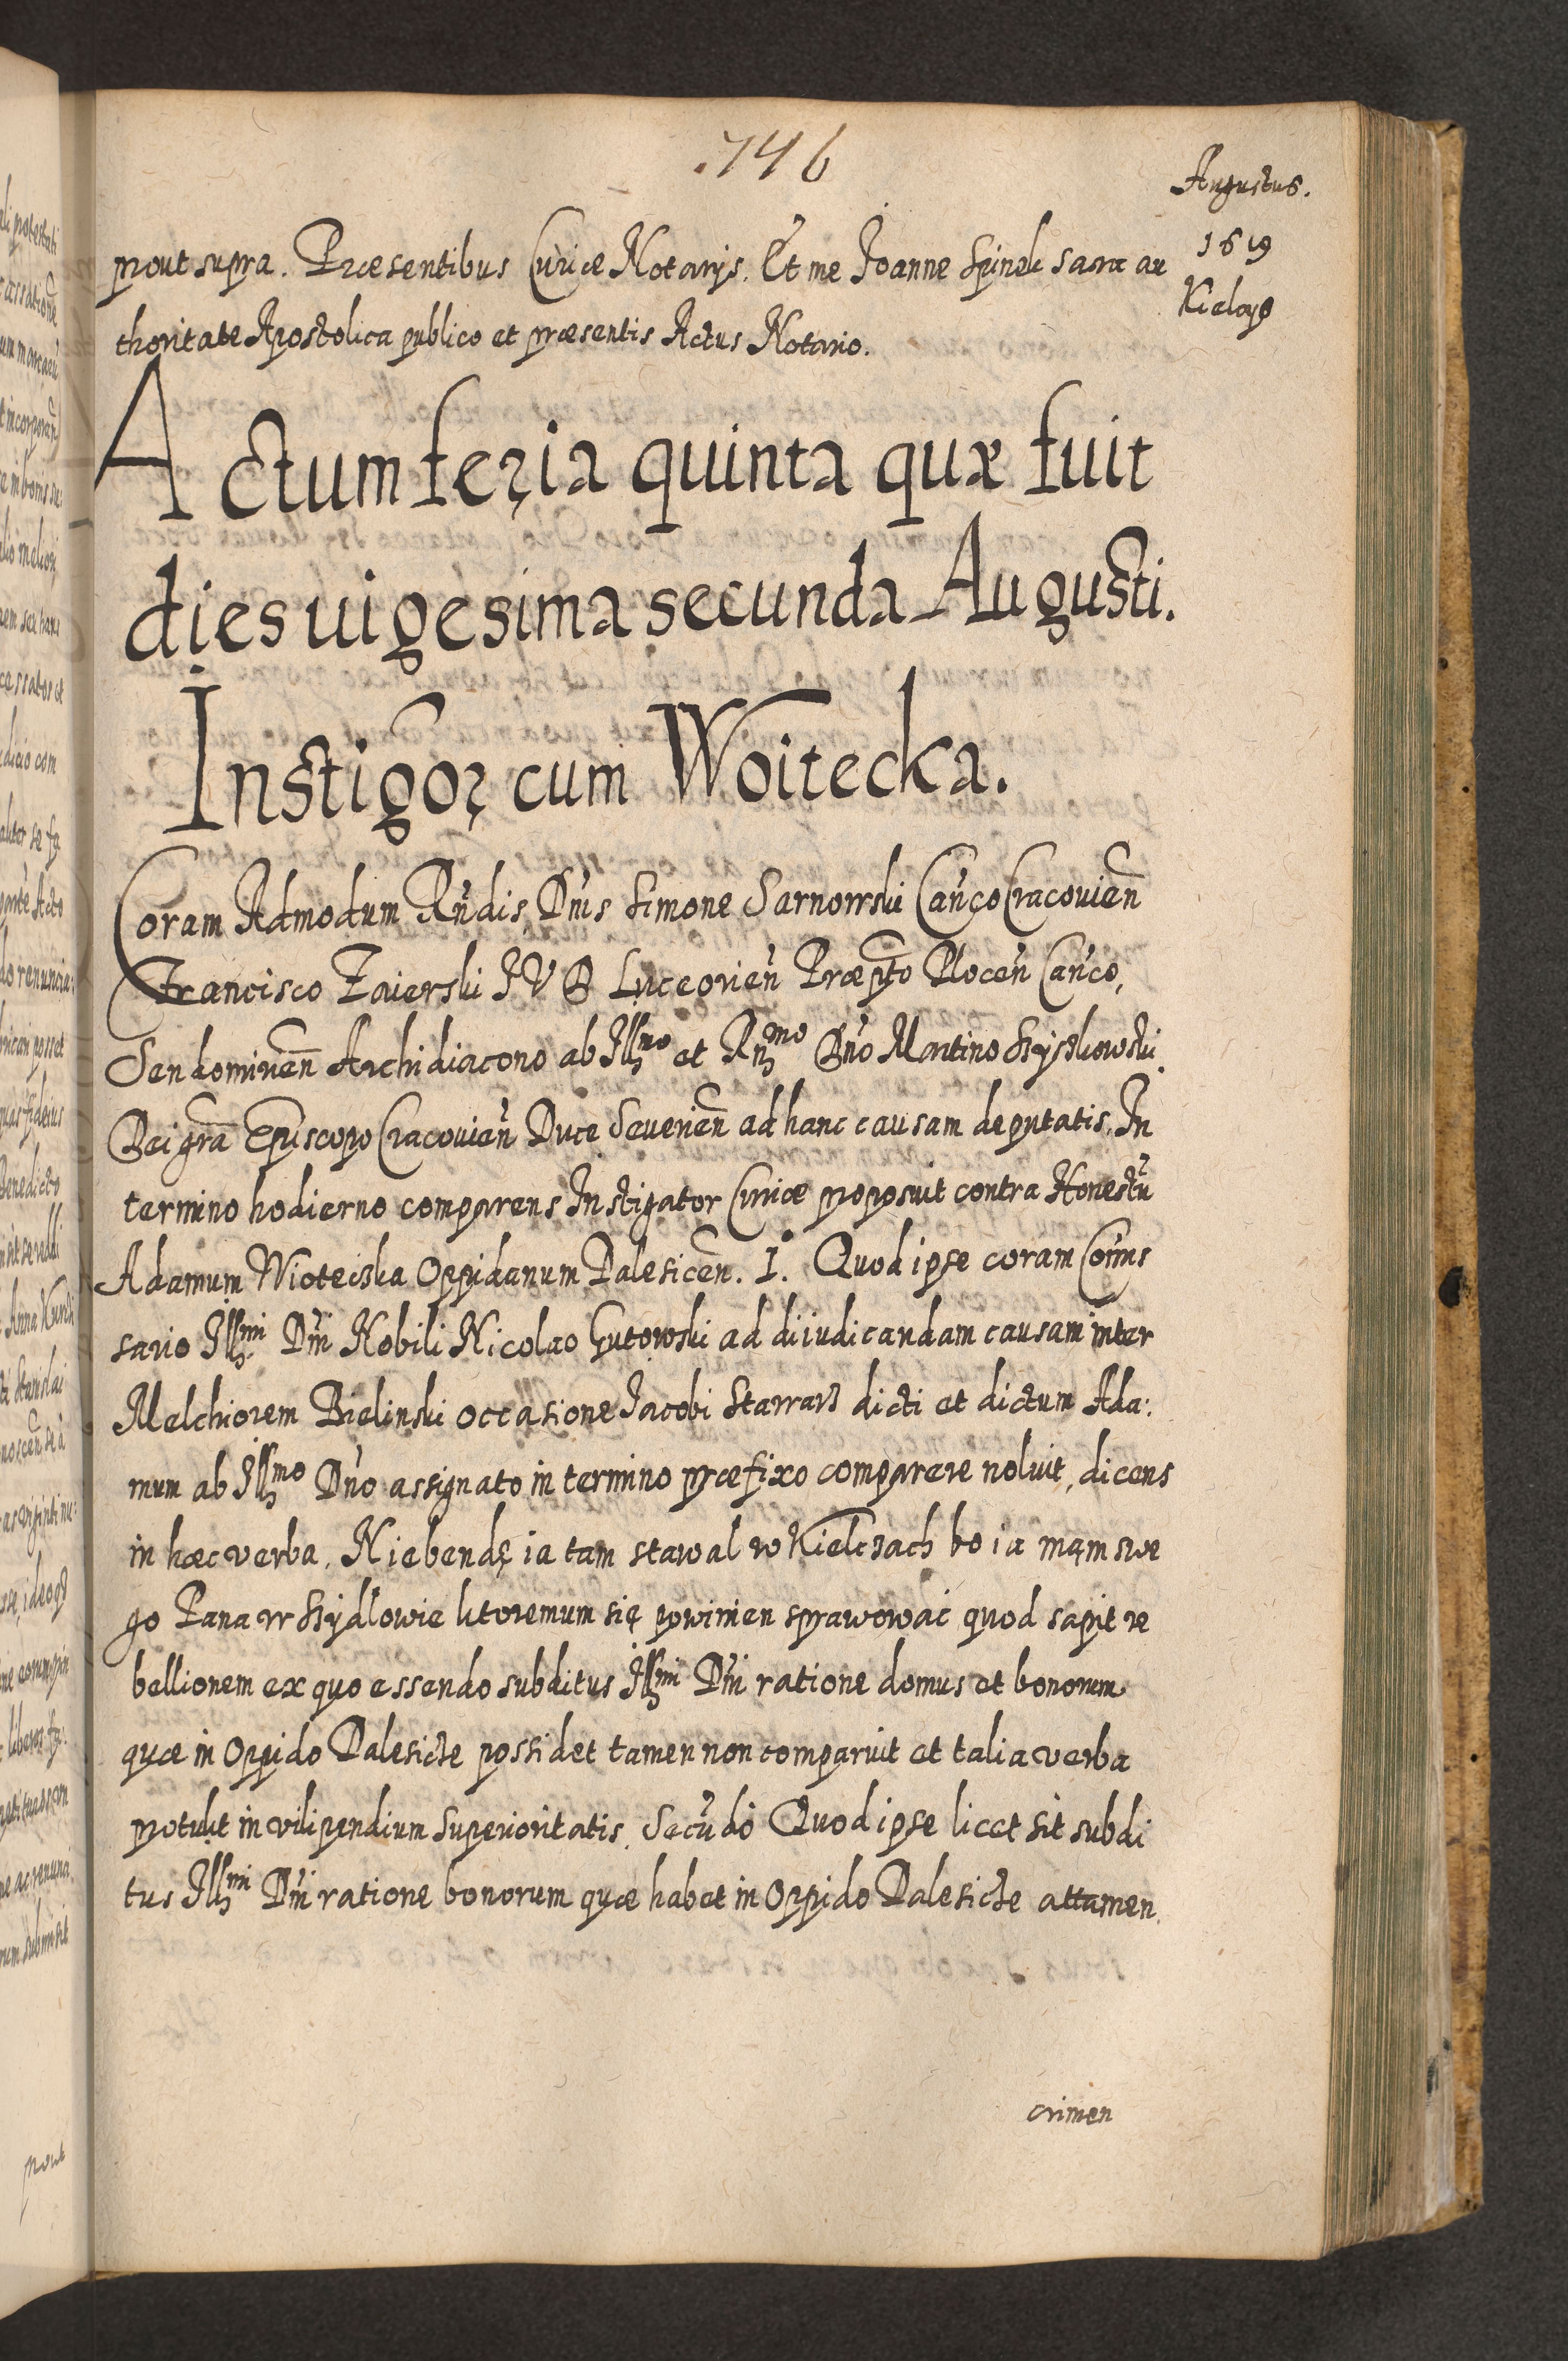 .746
Augustus.
1619
Kielcys
prout supra. Præsentibus Curiæ Notarijs. Et me Joanne Spinek sacra au
thoritate Apostolica publico et præsentis Actus Notario.
Actum feria quinta quæ fuit
dies uigesima secunda Augusti.
Instigor cum Woitecka.
Coram Admodum Rndis Dnis Simone Sarnowski Canco Cracouien
Francisco Zaierski JVD Luceorien Præpto Plocen Canco,
Sendomirien Archidiacono ab Illmo et Rmo Dno Martino Szyszkowski
Dei gra Episcopo Cracouien Duce Seuerien ad hanc causam deputatis. In
termino hodierno comparens Instigator Curiæ proposuit contra Honestu
Adamum Wioteczka Oppidanum Dalesicen. I. Quod ipse coram Comis
sario Illmi Dni Nobili Nicolao Gutowski ad diiudicandam causam inter
Melchiorem Bielinski occasione Jacobi Starrarz dicti et dictum Ada:
mum ab Illmo Dno assignato in termino præfixo comparere noluit, dicens
in hæc verba. Niebendę ia tam stawal w Kielczach bo ia mąm swe
go Pana w Szydlowie ktoremum się powinien sprawowac quod sapit re
bellionem ex quo essendo subditus Illmi Dni ratione domus et bonorum
quæ in Oppido Dalesicze possidet tamen non comparuit et talia verba
protulit in vilipendium Superioritatis. Secudo Quod ipse licet sit subdi
tus Illmi Dni ratione bonorum quæ habet in Oppido Dalesicze attamen
crimen